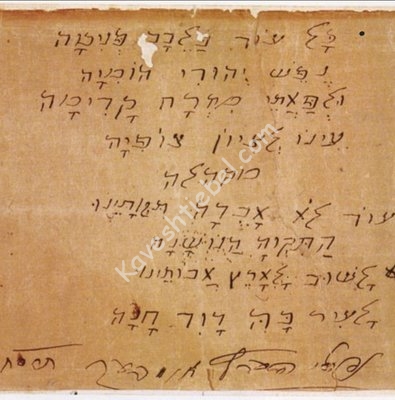 כָּל עוֹד בַּלֵּבָב פְּנִימָה
נֶפֶשׁ יְהוּדִי הוֹמִיָּה
וּלְפַאֲתֵי מִזְרָח קָדִימָה
עֵינוֹ לְצִיוֹן צוֹפִיָּה
מקהלה
עוֹד לֹא אָבְדָה תִּקְוָתֵינוּ
הַתִּקְוָה הַנּוֹשָׁנָה
לָשׁוּב לְאֶרֶץ אֲבוֹתֵינוּ
לָעִיר בָּהּ דָּוִד חָנָה
נפתלי הערץ אימבער
Kaveshtiebel.com